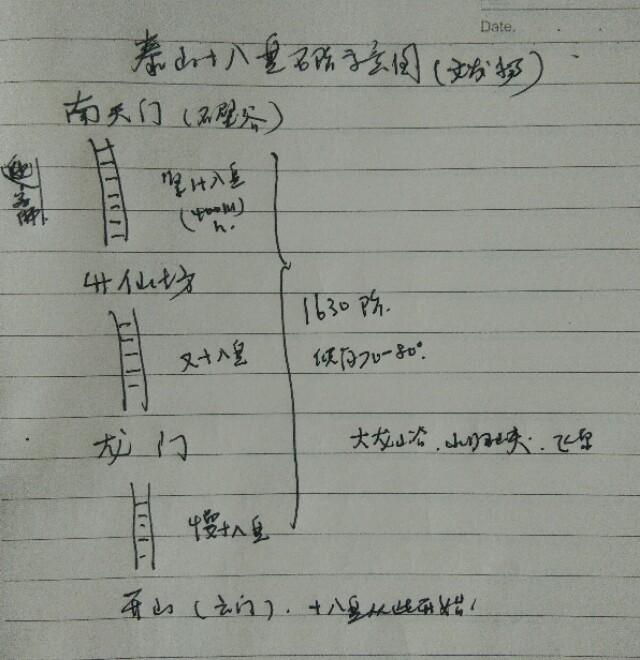 Date.
泰山十八盘石阶示意图
南天门（石壁谷）
紧十八盘
(400M)
h.
升仙坊
1630阶.
又十八盘
倾角70-80°.
龙门
大龙峪.
慢十八盘
开山（云门）. 十八盘从此开始